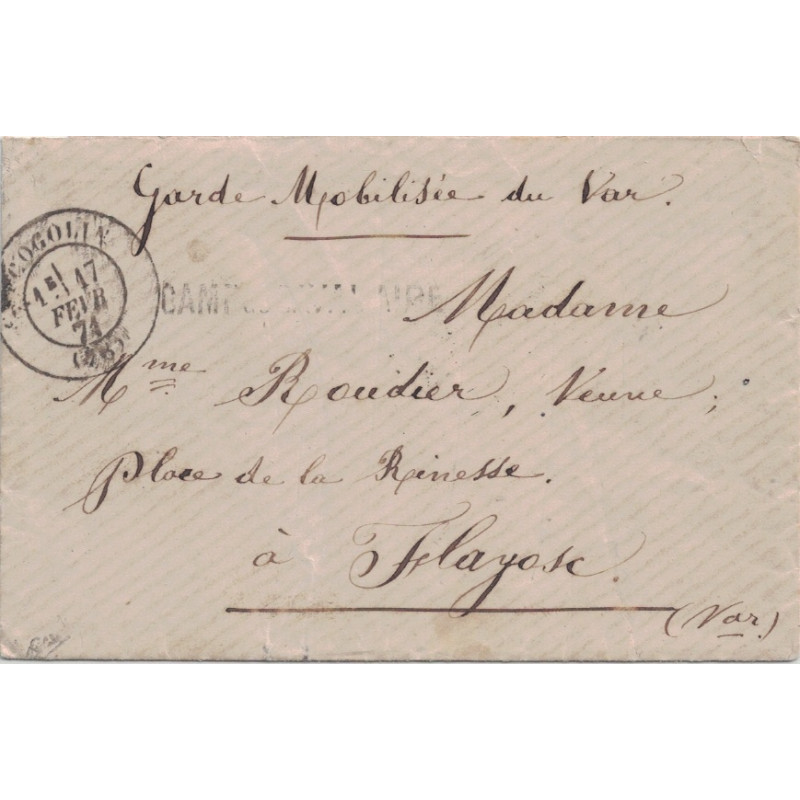 Garde Mobilisée du Var.
COGOLIN
1E 17
FEVR
71
(78)
CAMP
Madame
Mme Roudier, Veuve;
place de la Rinesse.
à Flayosc.
(Var)